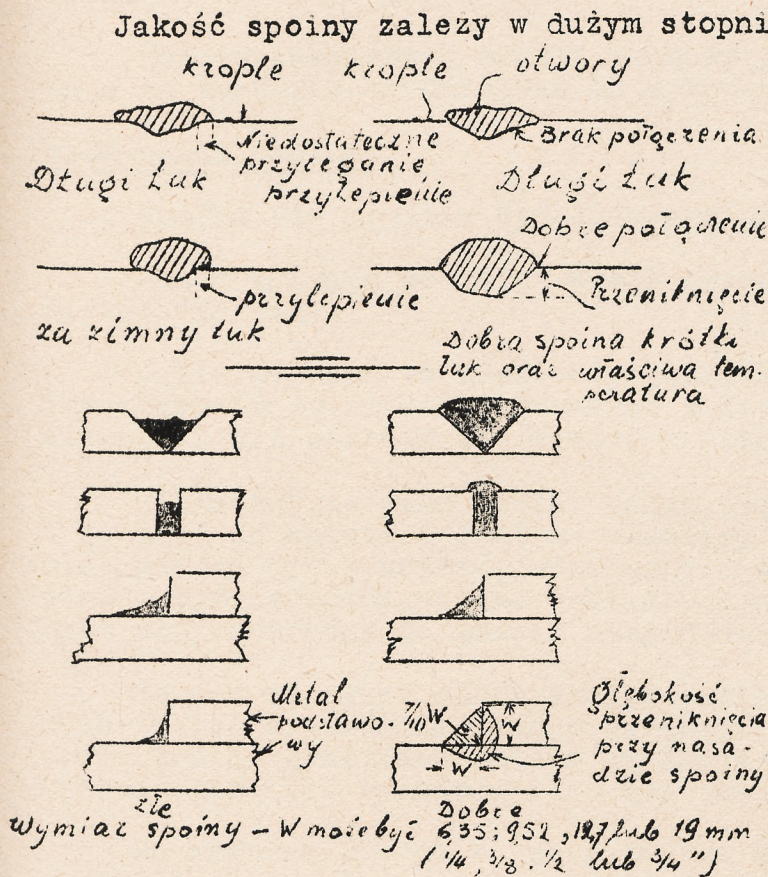 Jakość spoiny zalezy w dużym stopni
krople krople otwory
Niedostateczne
przyleganie
przylepienie
Brak połączenia
Długi Łuk Długi Łuk
Dobre połączenie
przylepienie
Przeniknięcie
za zimny łuk
Dobra spoina krótki
łuk oraz właściwa tem-
peratura
Metal
podstawo-
wy
7/10 W
W
W
Głębokość
przeniknięcia
przy nasa-
dzie spoiny
złe Dobre
Wymiar spoiny – W może być 6,35; 9,52, 12,7 lub 19 mm
(1/4, 3/8. 1/2 lub 3/4")